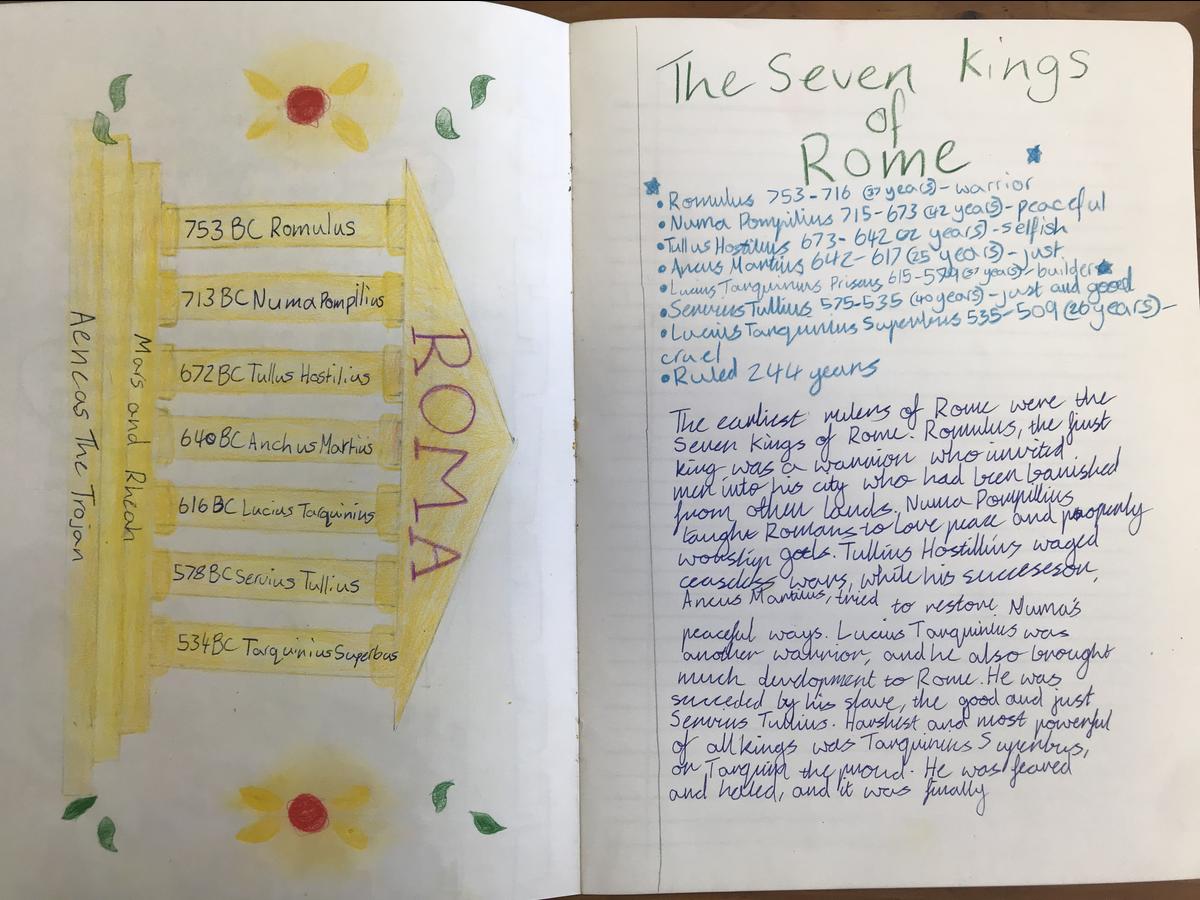 ROMA
753 BC Romulus
713 BC Numa Pompilius
672 BC Tullus Hostilius
640 BC Anchus Martius
616 BC Lucius Tarquinius
578 BC Servius Tullius
534 BC Tarquinius Superbus
Mars and Rheah
Aeneas The Trojan
The Seven Kings
of
Rome
• Romulus 753-716 (37 years) - warrior
• Numa Pompilius 715-673 (42 years) - peaceful
• Tullus Hostilius 673-642 (32 years) - selfish
• Ancus Martius 642-617 (25 years) - just
• Lucius Tarquinius Priscus 615-579 (37 years) - builder
• Servius Tullius 575-535 (40 years) - just and good
• Lucius Tarquinius Superbus 535-509 (26 years) -
cruel
• Ruled 244 years
The earliest rulers of Rome were the
Seven Kings of Rome. Romulus, the first
king was a warrior who invited
men into his city who had been banished
from other lands. Numa Pompilius
taught Romans to love peace and properly
worship gods. Tullius Hostillius waged
ceaseless wars, while his succeseson,
Ancus Martius, tried to restore Numa's
peaceful ways. Lucius Tarquinius was
another warrior, and he also brought
much development to Rome. He was
succeded by his slave, the good and just
Servius Tullius. Harshest and most powerful
of all kings was Tarquinius Superbus,
or Tarquin the proud. He was feared
and hated, and it was finally